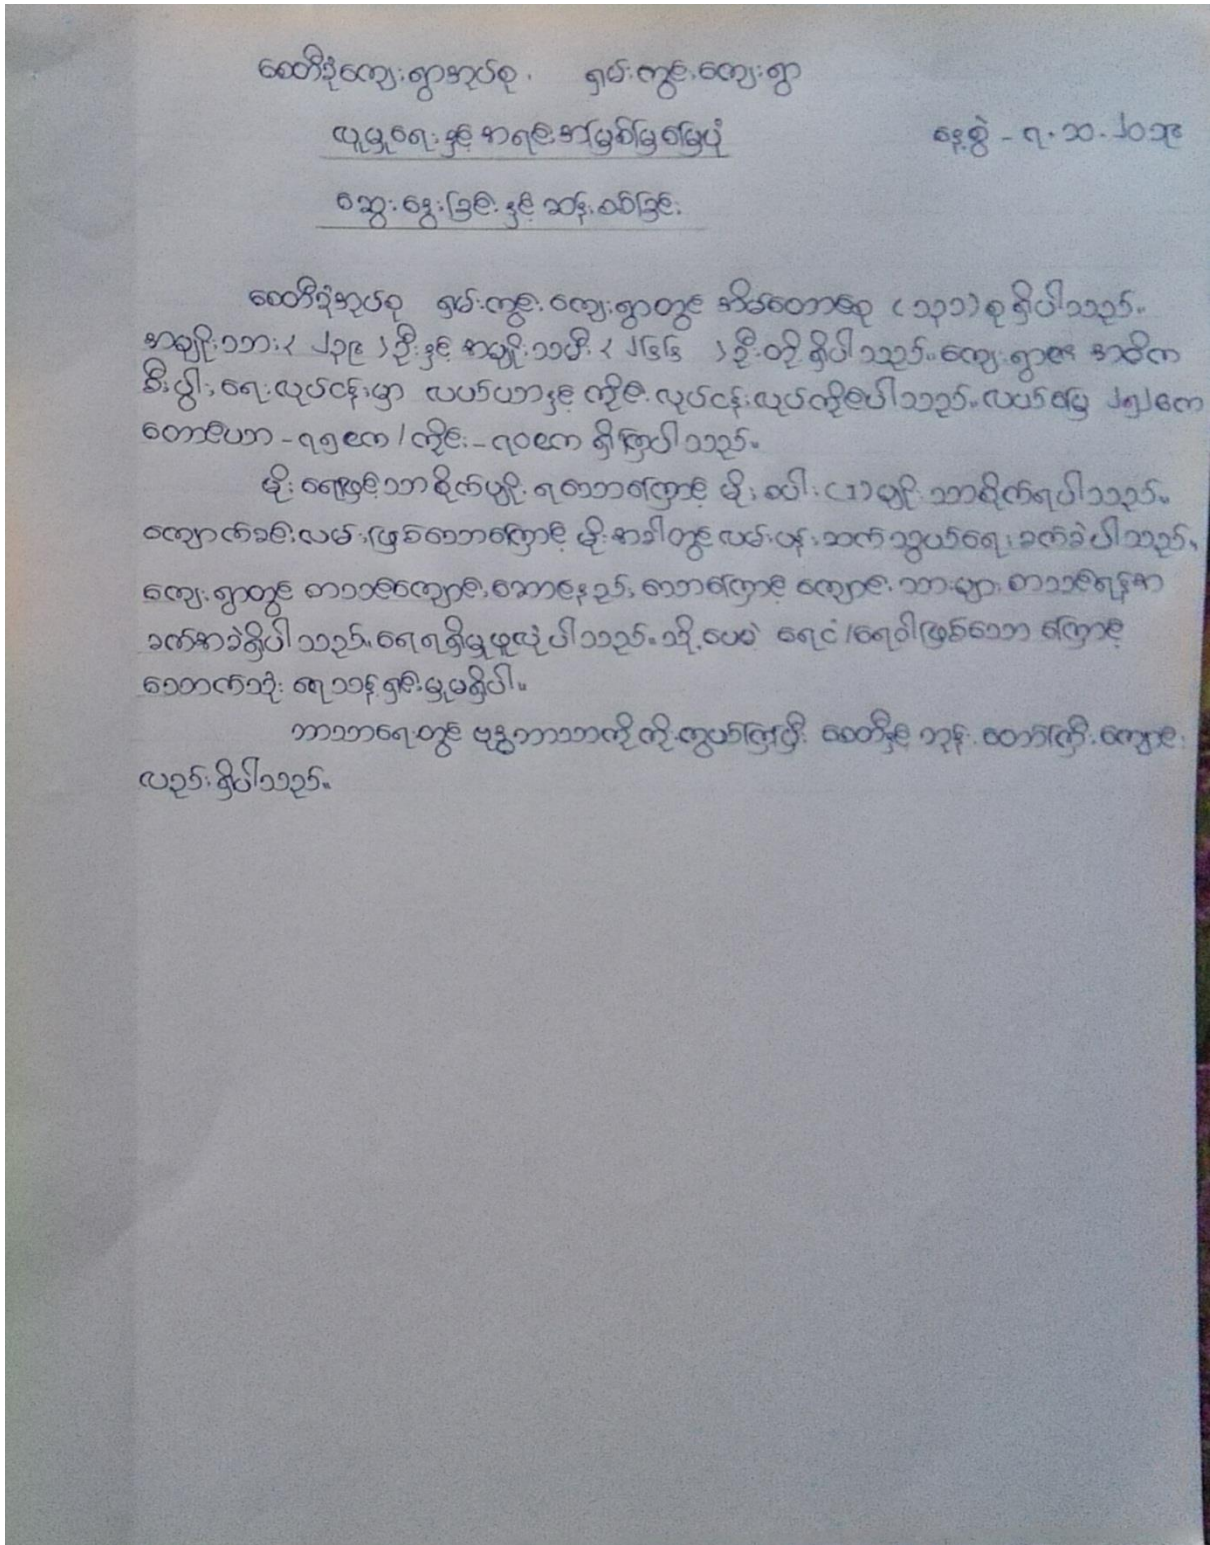 စေတီခုံကျေးရွာအုပ်စု၊ ရှမ်းကွင်းကျေးရွာ
လူမှုရေးနှင့် အရင်းအမြစ်မြေပုံ နေ့စွဲ - ၇.၁၁.၂၀၁၄
ဆွေးနွေးခြင်းနှင့် ဆန်းစစ်ခြင်း
စေတီခုံအုပ်စု ရှမ်းကွင်းကျေးရွာတွင် အိမ်ထောင်စု (၁၃၁) စုရှိပါသည်။
အမျိုးသား ( ၂၃၉ ) ဦးနှင့် အမျိုးသမီး ( ၂၆၆ ) ဦးတို့ရှိပါသည်။ ကျေးရွာ၏ အဓိက
စီးပွါးရေးလုပ်ငန်းမှာ လယ်ယာနှင့် ကိုင်းလုပ်ငန်းလုပ်ကိုင်ပါသည်။ လယ်မြေ ၂၅၂ဧက
တောင်ယာ - ၇၅ဧက / ကိုင်း - ၇၀ဧက ရှိကြပါသည်။
မိုးရေဖြင့်သာစိုက်ပျိုးရသောကြောင့် မိုးစပါး (၁) မျိုးသာစိုက်ရပါသည်။
ကျောက်ခင်းလမ်းဖြစ်သောကြောင့် မိုးအခါတွင် လမ်းပန်းဆက်သွယ်ရေးခက်ခဲပါသည်။
ကျေးရွာတွင် စာသင်ကျောင်းဆောင်နည်းသောကြောင့် ကျောင်းသားများစာသင်ရန်အ
ခက်အခဲရှိပါသည်။ ရေရရှိမှုဖူလုံပါသည်။ သို့ပေမဲ့ ရေငံ/ရေဝါဖြစ်သောကြောင့်
သောက်သုံးရေသန့်ရှင်းမှုမရှိပါ။
ဘာသာရေးတွင် ဗုဒ္ဓဘာသာကိုကိုးကွယ်ကြပြီး စေတီနှင့် ဘုန်းတော်ကြီးကျောင်း
လည်းရှိပါသည်။